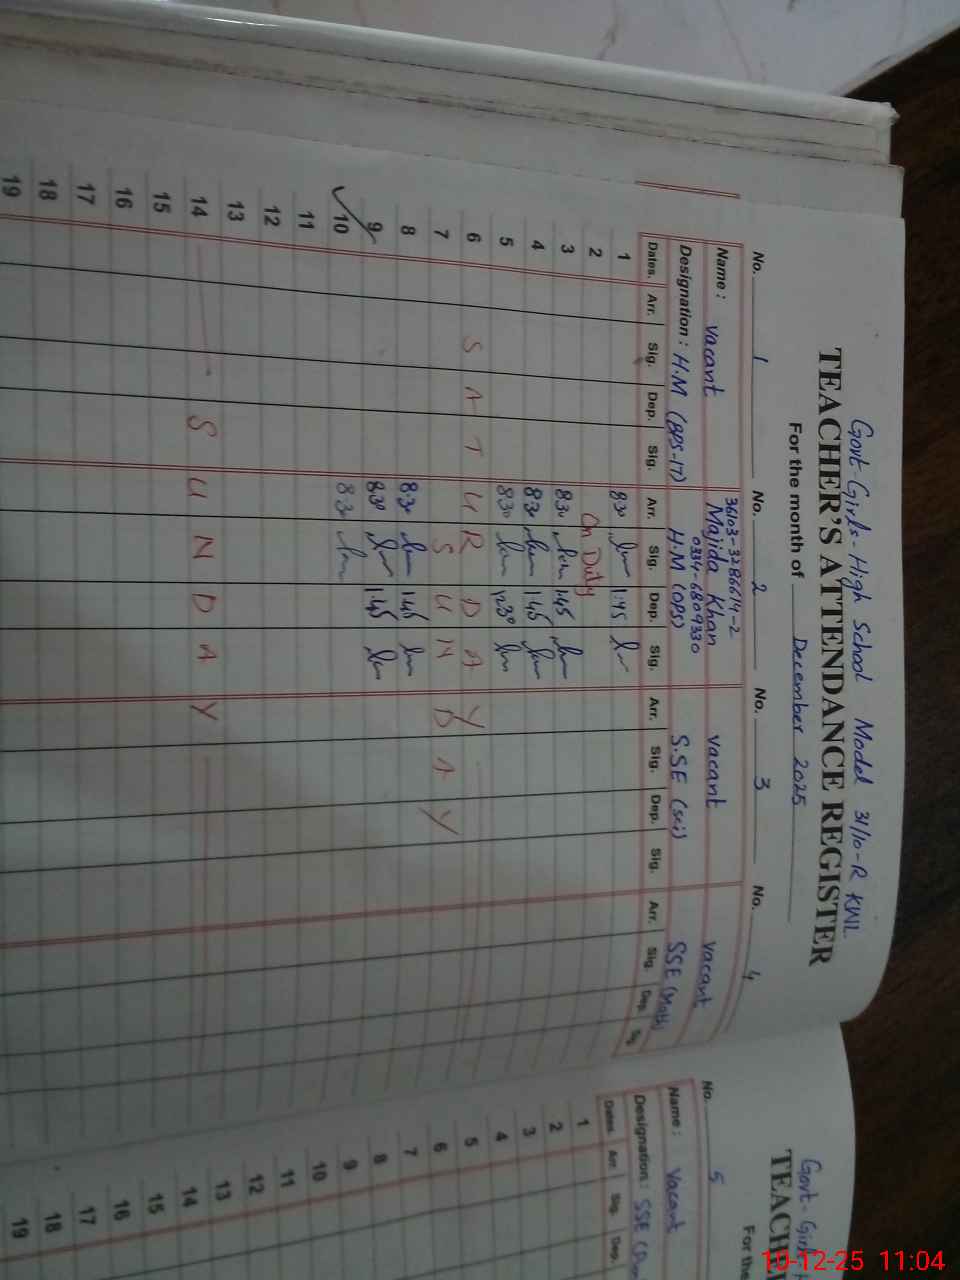 Govt-Girls-High School Model 31/10-R KWL
TEACHER'S ATTENDANCE REGISTER
For the month of December 2025
No. 1 No. 2 No. 3 No. 4
36103-3286614-2
Name: Vacant Majida Khan Vacant Vacant
0334-6809330
Designation: H.M (BPS-17) H.M (OPS) S.SE (sci) SSE (Math)
Dates. Arr. Sig. Dep. Sig. Arr. Sig. Dep. Sig. Arr. Sig. Dep. Sig. Arr. Sig. Dep. Sig.
1 830 1.45
2 On Duty
3 830 1.45
4 830 1.45
5 830 1230
6 SATURDAY
7 SUNDAY
8 830 1.45
9 830 1.45
10 830
11
12
13
14 SUNDAY
15
16
17
18
19
Govt-Girls-H
TEACHE
For the
No. 5
Name: Vacant
Designation: SSE
Dates. Arr. Sig. Dep.
1
2
3
4
5
6
7
8
9
10
11
12
13
14
15
16
17
18
19
10-12-25 11:04